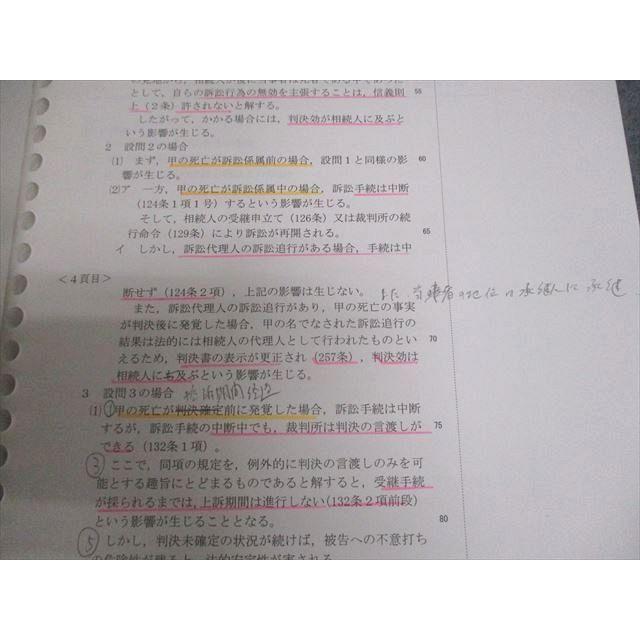 として，自らの訴訟行為の無効を主張することは，信義則 55
上（2条）許されないと解する。
したがって，かかる場合には，判決効が相続人に及ぶと
いう影響が生じる。
2 設問2の場合
(1) まず，甲の死亡が訴訟係属前の場合，設問1と同様の影 60
響が生じる。
(2)ア 一方，甲の死亡が訴訟係属中の場合，訴訟手続は中断
（124条1項1号）するという影響が生じる。
そして，相続人の受継申立て（126条）又は裁判所の続
行命令（129条）により訴訟が再開される。 65
イ しかし，訴訟代理人の訴訟追行がある場合，手続は中
＜4頁目＞
断せず（124条2項），上記の影響は生じない。 また，当事者の地位は承継人に承継
また，訴訟代理人の訴訟追行があり，甲の死亡の事実
が判決後に発覚した場合，甲の名でなされた訴訟追行の
結果は法的には相続人の代理人として行われたものとい 70
えるため，判決書の表示が更正され（257条），判決効は
相続人にも及ぶという影響が生じる。
3 設問3の場合
(1) ①甲の死亡が判決確定前に発覚した場合，訴訟手続は中断
するが，訴訟手続の中断中でも，裁判所は判決の言渡しが 75
できる（132条1項）。
③ ここで，同項の規定を，例外的に判決の言渡しのみを可
能とする趣旨にとどまるものであると解すると，受継手続
が採られるまでは，上訴期間は進行しない（132条2項前段）
という影響が生じることとなる。 80
⑤ しかし，判決未確定の状況が続けば，被告への不意打ち